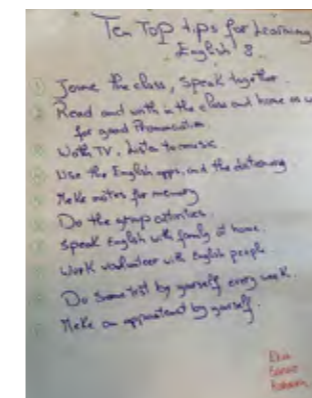 Ten Top tips for Learning
English 8
1 Jome the class, Speak together.
2 Read and with in the class and home as
for good Pronunciation.
TV, Listen to music.
Use the English apps, and the dictionary
Make notes for memory
Do the group activities.
Speak English with family at home.
Work volunteer with English people.
Do Some test by yourself every week.
Meke an appointment by yourself.